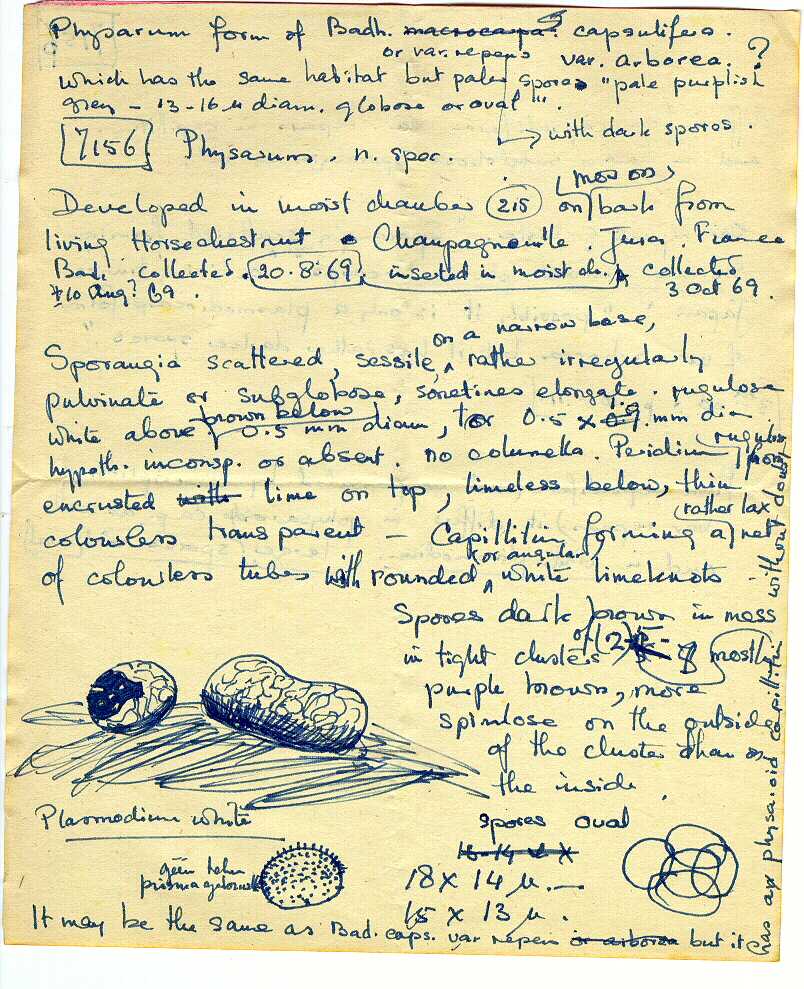 Physarum form of Badh. macrocarpa? capsulifera.
or var. repens var. arborea. ?
which has the same habitat but pale spores "pale purplish
grey – 13-16 µ diam. globose or oval".
→ with dark spores.
7156 Physarum. n. spec.
moss on
Developed in moist chamber 215 on bark from
living Horsechestnut Champagneville. Jura. France
Bark collected. 20.8.69, inserted in moist ch. collected
±10 Aug? 69. 3 Oct 69.
on a narrow base,
Sporangia scattered, sessile, rather irregularly
pulvinate or subglobose, sometimes elongate. rugulose
white above, brown below 0.5 mm diam, or 0.5 x 0.9 mm dia
hypoth. inconsp. or absent. no columella. Peridium rugulose
encrusted with lime on top, limeless below, thin
(rather lax
colourless transparent – Capillitium forming a net
(or angular)
of colourless tubes with rounded, white limeknots –
Spores dark brown in mass
in tight clusters of (2) 5 - 8 mostly
purple brown, more
spinulose on the outside
of the cluster than on
the inside.
Plasmodium white
spores oval
18 x 14 µ. –
15 x 13 µ.
géén helm
It may be the same as Bad. caps. var repens or arborea but it
has a physaroid capillitium without doubt